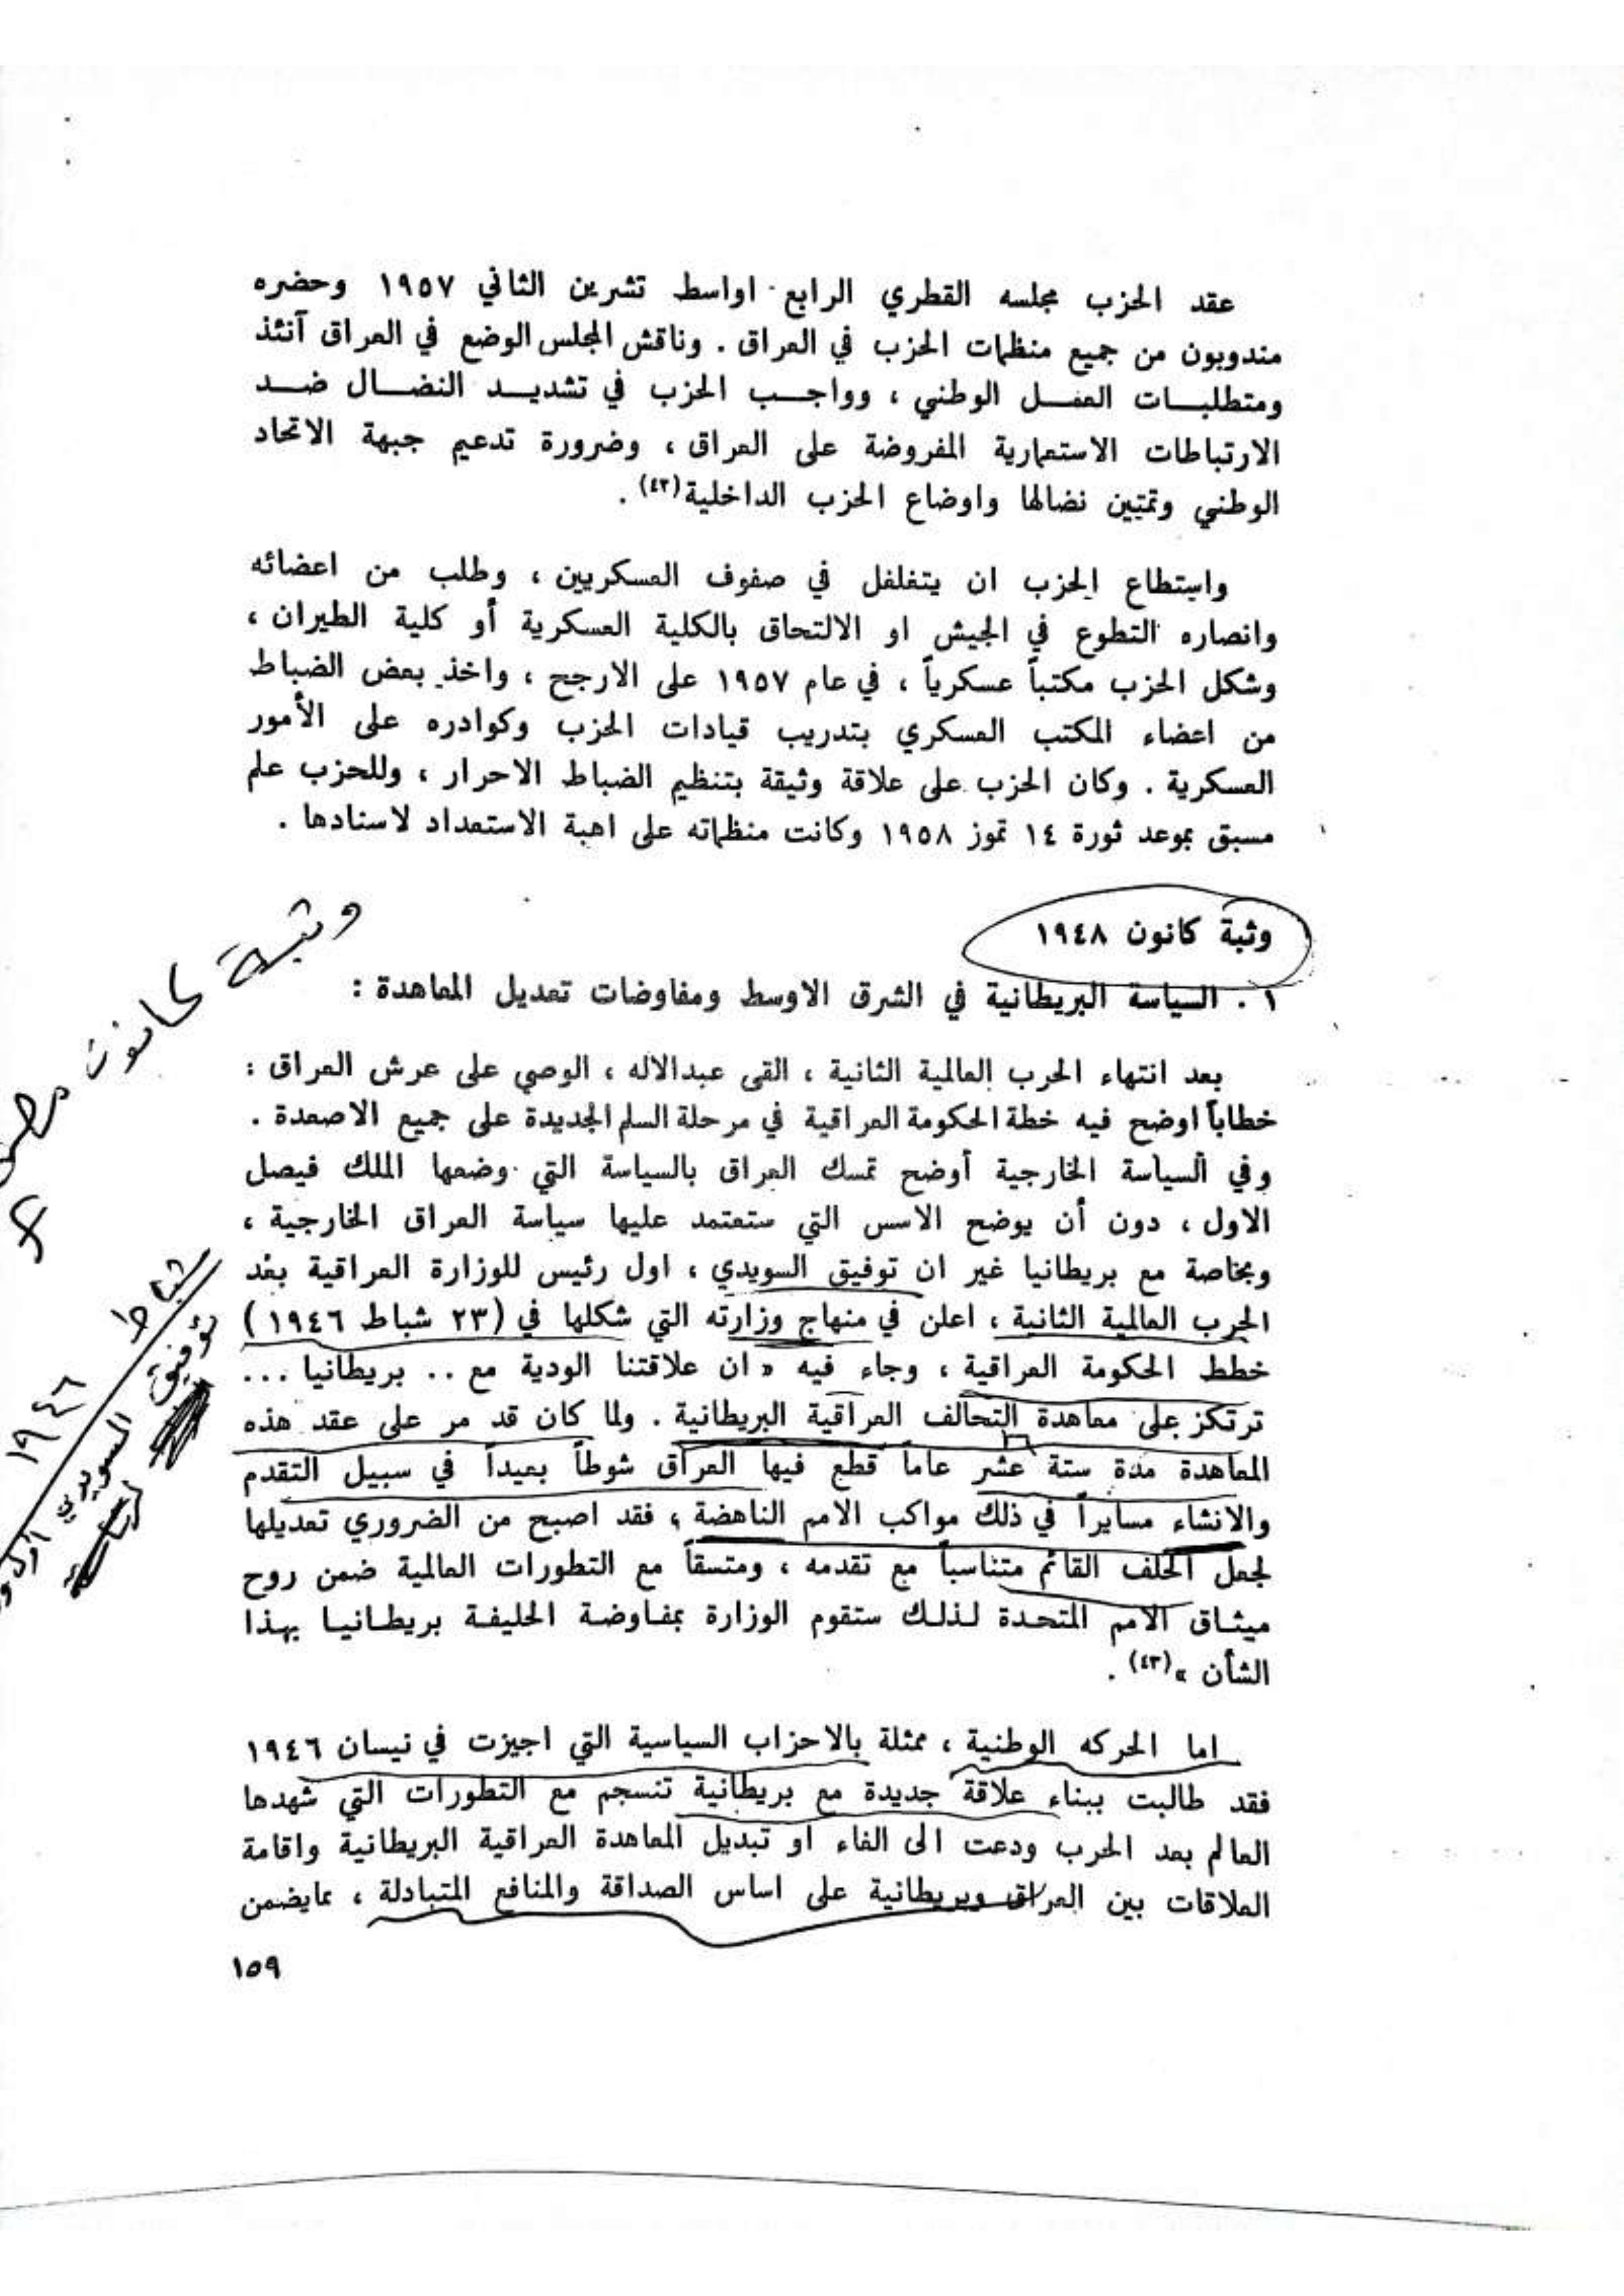 عقد الحزب مجلسه القطري الرابع اواسط تشرين الثاني ١٩٥٧ وحضره
مندوبون من جميع منظمات الحزب في العراق . وناقش المجلس الوضع في العراق آنئذ
ومتطلبات العمل الوطني ، وواجب الحزب في تشديد النضال ضد
الارتباطات الاستعمارية المفروضة على العراق ، وضرورة تدعيم جبهة الاتحاد
الوطني وتمتين نضالها واوضاع الحزب الداخلية(٤٢) .
واستطاع الحزب ان يتغلغل في صفوف العسكريين ، وطلب من اعضائه
وانصاره التطوع في الجيش او الالتحاق بالكلية العسكرية أو كلية الطيران ،
وشكل الحزب مكتباً عسكرياً ، في عام ١٩٥٧ على الارجح ، واخذ بعض الضباط
من اعضاء المكتب العسكري بتدريب قيادات الحزب وكوادره على الأمور
العسكرية . وكان الحزب على علاقة وثيقة بتنظيم الضباط الاحرار ، وللحزب علم
مسبق بموعد ثورة ١٤ تموز ١٩٥٨ وكانت منظماته على اهبة الاستعداد لاسنادها .
وثبة كانون ١٩٤٨
١ . السياسة البريطانية في الشرق الاوسط ومفاوضات تعديل المعاهدة :
بعد انتهاء الحرب العالمية الثانية ، القى عبدالاله ، الوصي على عرش العراق :
خطاباً اوضح فيه خطة الحكومة العراقية في مرحلة السلم الجديدة على جميع الاصعدة .
وفي السياسة الخارجية أوضح تمسك العراق بالسياسة التي وضعها الملك فيصل
الاول ، دون أن يوضح الاسس التي ستعتمد عليها سياسة العراق الخارجية ،
وبخاصة مع بريطانيا غير ان توفيق السويدي ، اول رئيس للوزارة العراقية بعد
الحرب العالمية الثانية ، اعلن في منهاج وزارته التي شكلها في (٢٣ شباط ١٩٤٦)
خطط الحكومة العراقية ، وجاء فيه « ان علاقتنا الودية مع .. بريطانيا ...
ترتكز على معاهدة التحالف العراقية البريطانية . ولما كان قد مر على عقد هذه
المعاهدة مدة ستة عشر عاماً قطع فيها العراق شوطاً بعيداً في سبيل التقدم
والانشاء مسايراً في ذلك مواكب الامم الناهضة ، فقد اصبح من الضروري تعديلها
لجعل الحلف القائم متناسباً مع تقدمه ، ومتسقاً مع التطورات العالمية ضمن روح
ميثاق الامم المتحدة لذلك ستقوم الوزارة بمفاوضة الحليفة بريطانيا بهذا
الشأن »(٤٣) .
اما الحركه الوطنية ، ممثلة بالاحزاب السياسية التي اجيزت في نيسان ١٩٤٦
فقد طالبت ببناء علاقة جديدة مع بريطانية تنسجم مع التطورات التي شهدها
العالم بعد الحرب ودعت الى الغاء او تبديل المعاهدة العراقية البريطانية واقامة
العلاقات بين العراق وبريطانية على اساس الصداقة والمنافع المتبادلة ، بمايضمن
١٥٩
وثبة كانون
شباط
١٩٤٦
توفيق السويدي اول